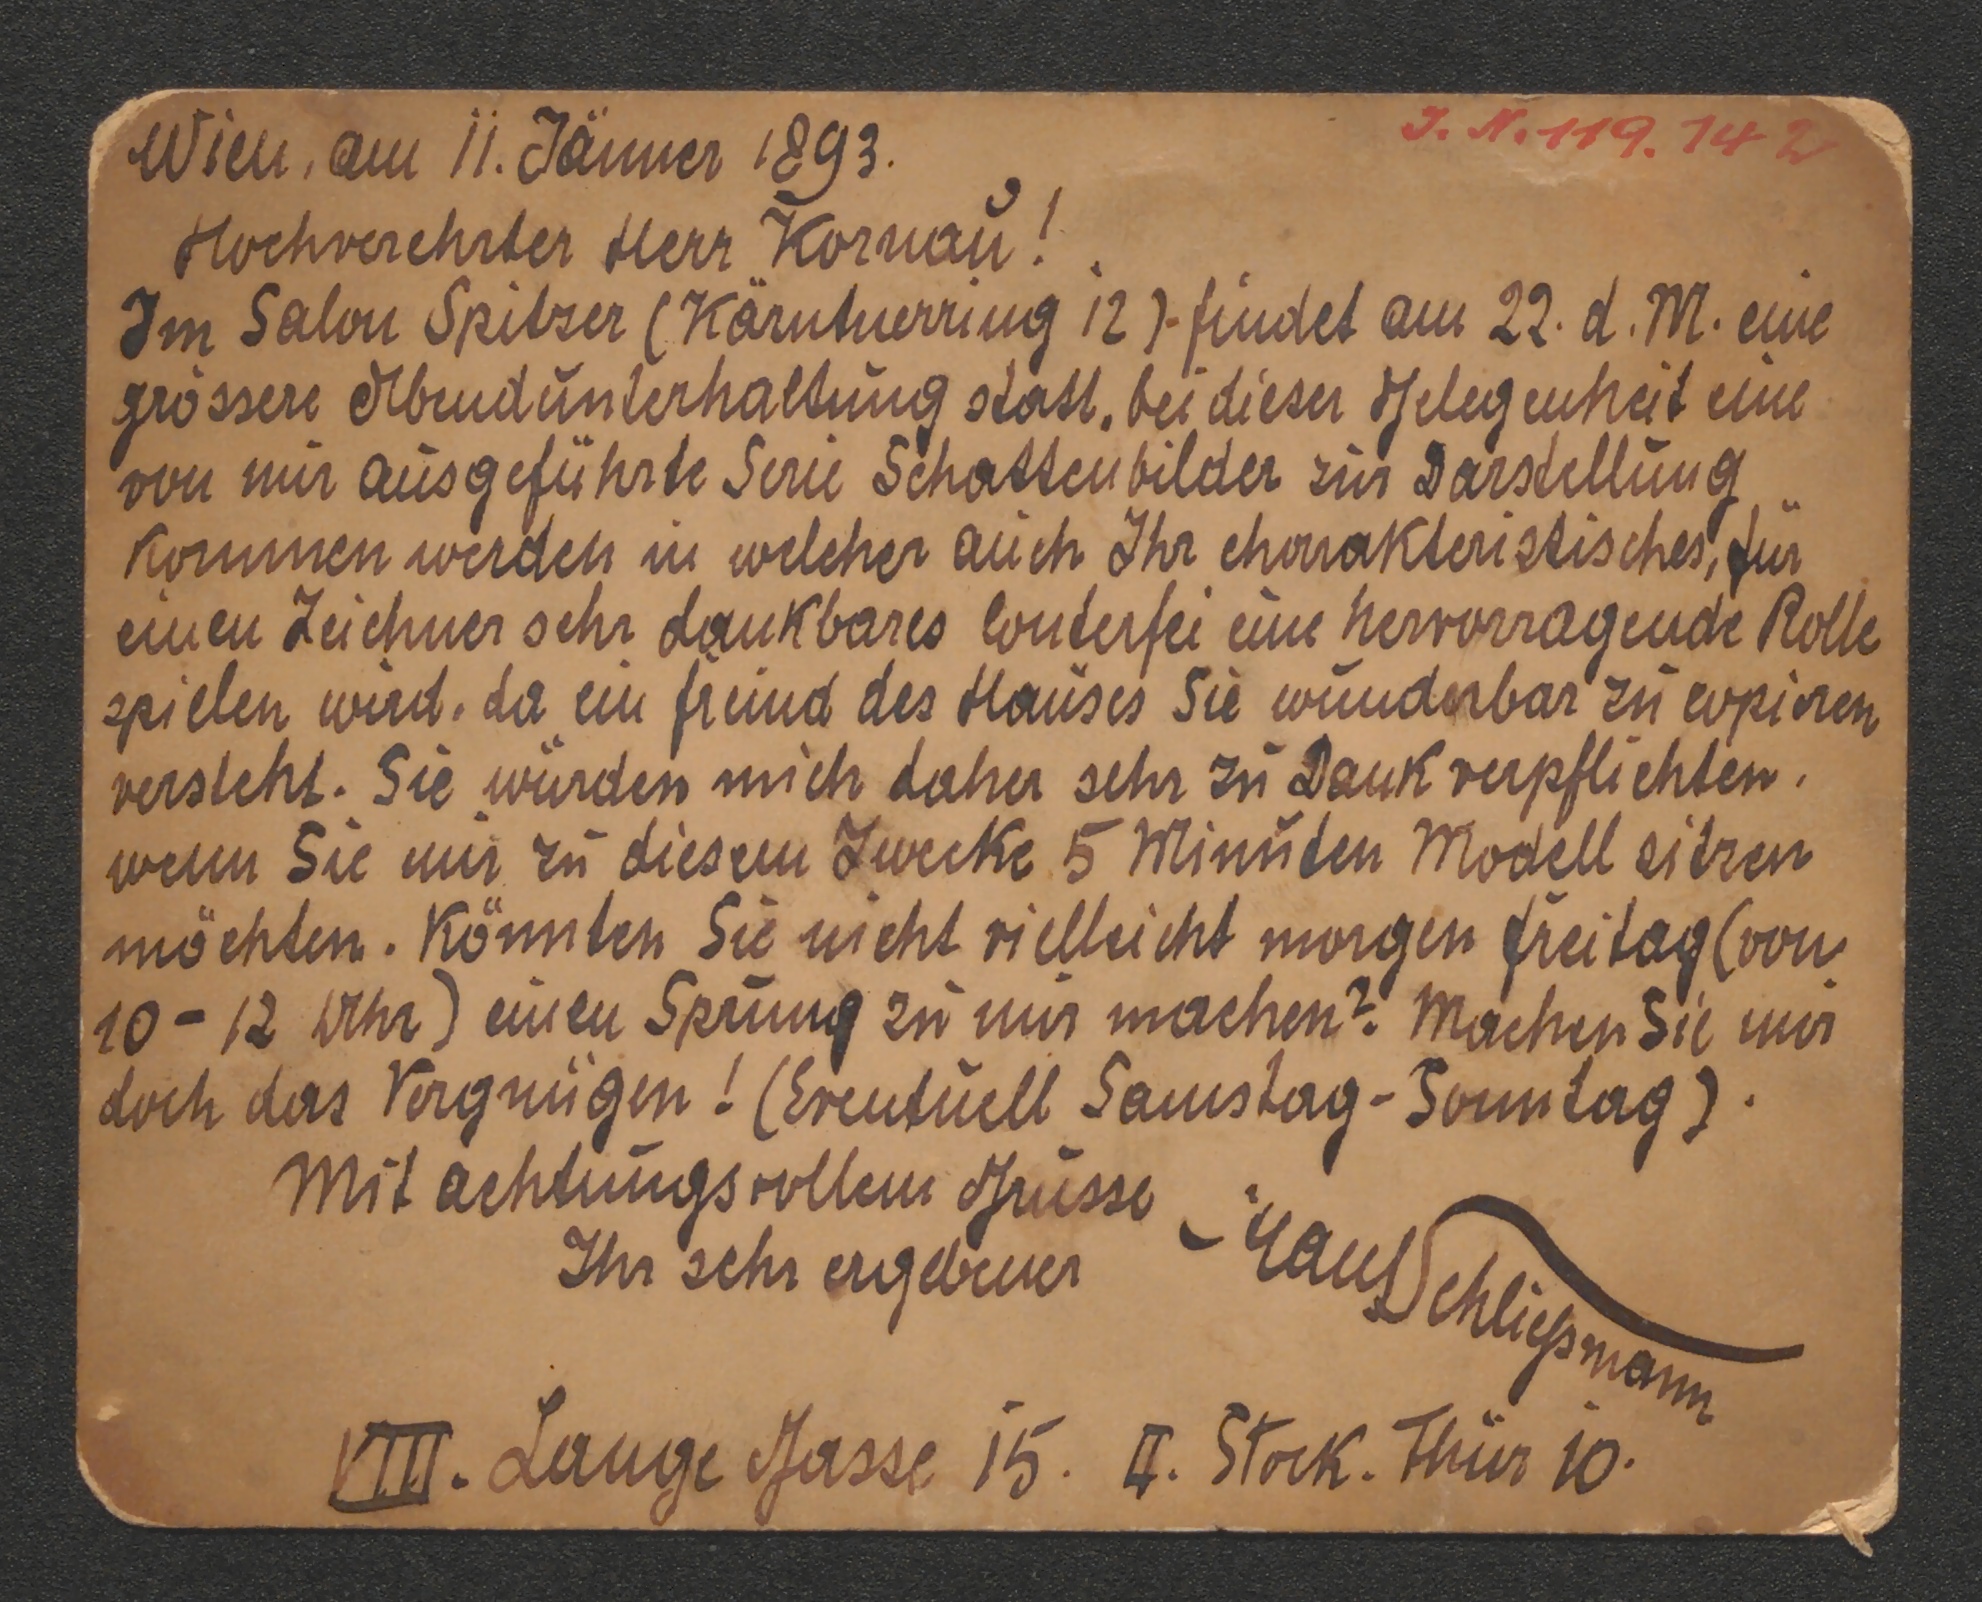 J. N. 119.142
Wien, am 11. Jänner 1893.
Hochverehrter Herr Kornau!
Im Salon Spitzer (Kärntnerring 12) findet am 22. d. M. eine
grössere Abendunterhaltung statt, bei dieser Gelegenheit eine
von mir ausgeführte Serie Schattenbilder zur Darstellung
kommen werden in welcher auch Ihr charakteristisches, für
einen Zeichner sehr dankbares Conterfei eine hervorragende Rolle
spielen wird, da ein Freund des Hauses Sie wunderbar zu copiren
versteht. Sie würden mich daher sehr zu Dank verpflichten,
wenn Sie mir zu diesem Zwecke 5 Minuten Modell sitzen
möchten. Könnten Sie nicht vielleicht morgen Freitag (von
10 - 12 Uhr) einen Sprung zu mir machen? Machen Sie mir
doch das Vergnügen! (Eventuell Samstag - Sonntag).
Mit achtungsvollem Grusse
Ihr sehr ergebener
Hans Schließmann
VIII. Lange Gasse 15. II. Stock. Thür 10.